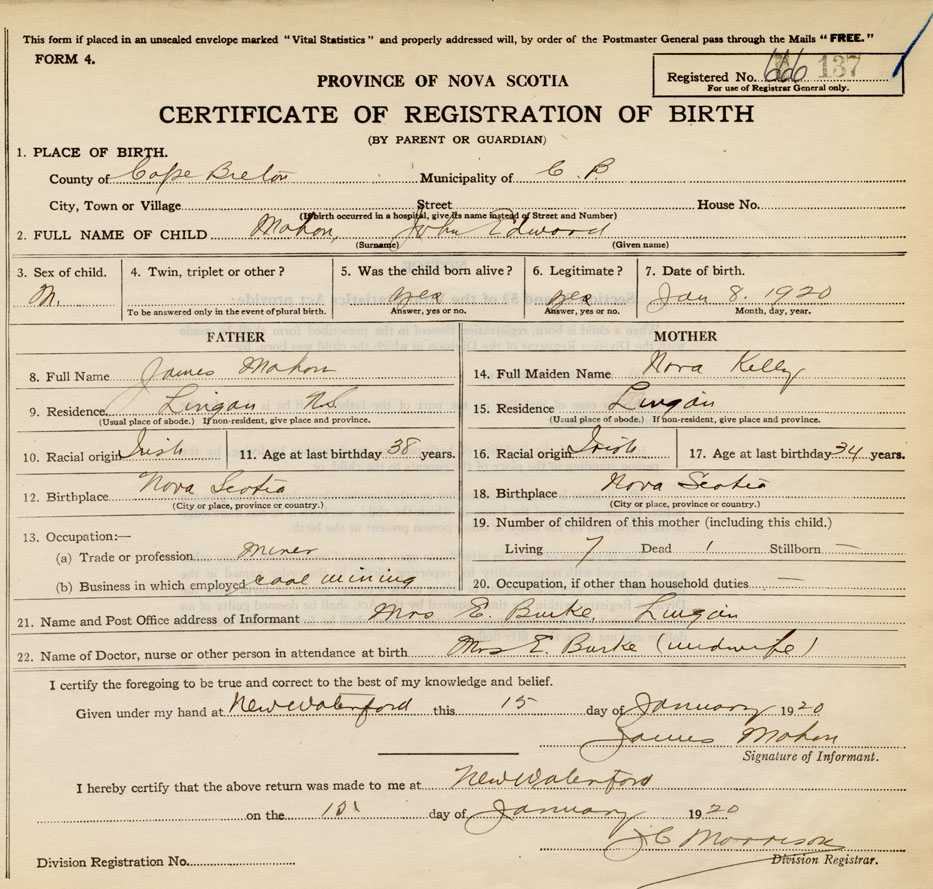 This form if placed in an unsealed envelope marked “Vital Statistics” and properly addressed will, by order of the Postmaster General pass through the Mails “FREE.”
FORM 4.
Registered No. 666 137
For use of Registrar General only.
PROVINCE OF NOVA SCOTIA
CERTIFICATE OF REGISTRATION OF BIRTH
(BY PARENT OR GUARDIAN)
1. PLACE OF BIRTH.
County of Cape Breton Municipality of C B
City, Town or Village Street House No.
(If birth occurred in a hospital, give its name instead of Street and Number)
2. FULL NAME OF CHILD Mahon, John Edward
(Surname) (Given name)
3. Sex of child. 4. Twin, triplet or other? 5. Was the child born alive? 6. Legitimate? 7. Date of birth.
M. yes yes Jan 8. 1920
To be answered only in the event of plural birth. Answer, yes or no. Answer, yes or no. Month, day, year.
FATHER MOTHER
8. Full Name James Mahon 14. Full Maiden Name Nora Kelly
9. Residence. Lingan N.S. 15. Residence Lingan
(Usual place of abode.) If non-resident, give place and province. (Usual place of abode.) If non-resident, give place and province.
10. Racial origin Irish 11. Age at last birthday 38 years. 16. Racial origin Irish 17. Age at last birthday 34 years.
12. Birthplace Nova Scotia 18. Birthplace Nova Scotia
(City or place, province or country.) (City or place, province or country.)
13. Occupation:— 19. Number of children of this mother (including this child.)
(a) Trade or profession miner Living 7 Dead 1 Stillborn —
(b) Business in which employed coal mining 20. Occupation, if other than household duties. —
21. Name and Post Office address of Informant Mrs E. Burke. Lingan
22. Name of Doctor, nurse or other person in attendance at birth Mrs E. Burke (midwife)
I certify the foregoing to be true and correct to the best of my knowledge and belief.
Given under my hand at New Waterford this 15 day of January 1920
James Mahon
Signature of Informant.
I hereby certify that the above return was made to me at New Waterford
on the 15 day of January 1920
J C Morrison
Division Registration No. Division Registrar.